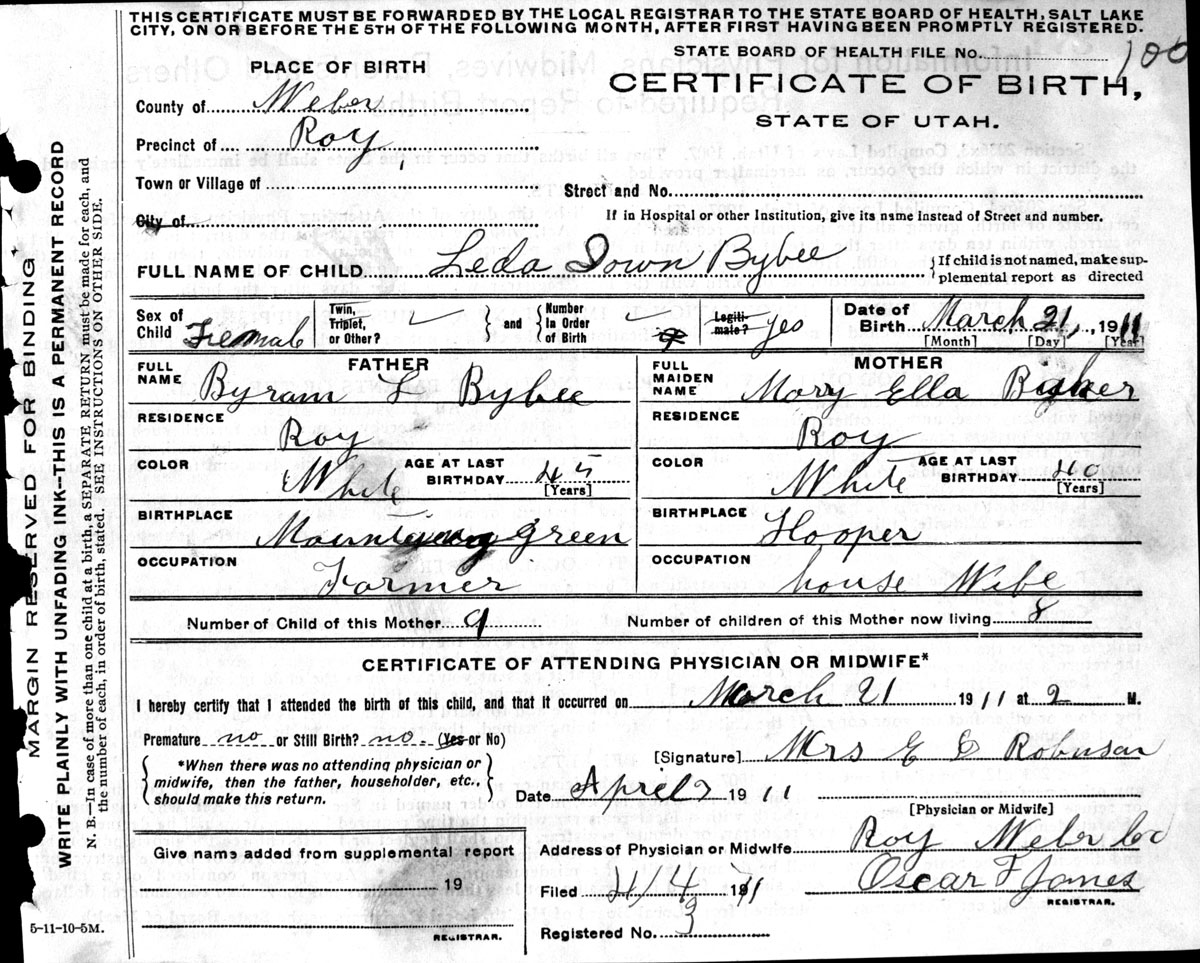 THIS CERTIFICATE MUST BE FORWARDED BY THE LOCAL REGISTRAR TO THE STATE BOARD OF HEALTH, SALT LAKE
CITY, ON OR BEFORE THE 5TH OF THE FOLLOWING MONTH, AFTER FIRST HAVING BEEN PROMPTLY REGISTERED.
STATE BOARD OF HEALTH FILE No. 100
PLACE OF BIRTH
CERTIFICATE OF BIRTH,
STATE OF UTAH.
County of Weber
Precinct of Roy
Town or Village of
Street and No.
City of
If in Hospital or other Institution, give its name instead of Street and number.
FULL NAME OF CHILD Leda Iown Bybee
If child is not named, make sup-
plemental report as directed
Sex of Child Female
Twin, Triplet, or Other?
and
Number in Order of Birth
Legiti-mate? yes
Date of Birth March 21, 1911
[Month] [Day] [Year]
FATHER
FULL NAME Byram L Bybee
RESIDENCE Roy
COLOR White
AGE AT LAST BIRTHDAY 45
[Years]
BIRTHPLACE Mountain green
OCCUPATION Farmer
MOTHER
FULL MAIDEN NAME Mary Ella Baker
RESIDENCE Roy
COLOR White
AGE AT LAST BIRTHDAY 40
[Years]
BIRTHPLACE Hooper
OCCUPATION house Wife
Number of Child of this Mother 9
Number of children of this Mother now living 8
CERTIFICATE OF ATTENDING PHYSICIAN OR MIDWIFE*
I hereby certify that I attended the birth of this child, and that it occurred on March 21 1911 at 2 M.
Premature no or Still Birth? no (Yes or No)
[Signature] Mrs E Robinson
*When there was no attending physician or
midwife, then the father, householder, etc.,
should make this return.
Date 1911
[Physician or Midwife]
Give name added from supplemental report
19
REGISTRAR.
Address of Physician or Midwife Roy Weber Co
Filed 4/4 1911
Oscar F Jones
REGISTRAR.
Registered No. 3
5-11-10-5M.
MARGIN RESERVED FOR BINDING
WRITE PLAINLY WITH UNFADING INK--THIS IS A PERMANENT RECORD
N. B.--In case of more than one child at a birth, a SEPARATE RETURN must be made for each, and
the number of each, in order of birth, stated. SEE INSTRUCTIONS ON OTHER SIDE.